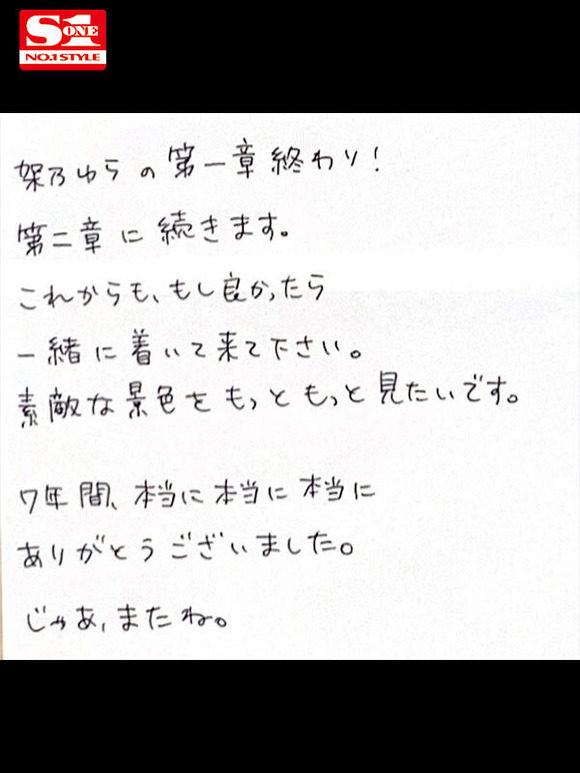 S1
ONE
NO.1 STYLE
架乃ゆらの第一章終わり!
第二章に続きます。
これからも、もし良かったら
一緒に着いて来て下さい。
素敵な景色をもっともっと見たいです。
7年間、本当に本当に本当に
ありがとうございました。
じゃあ、またね。